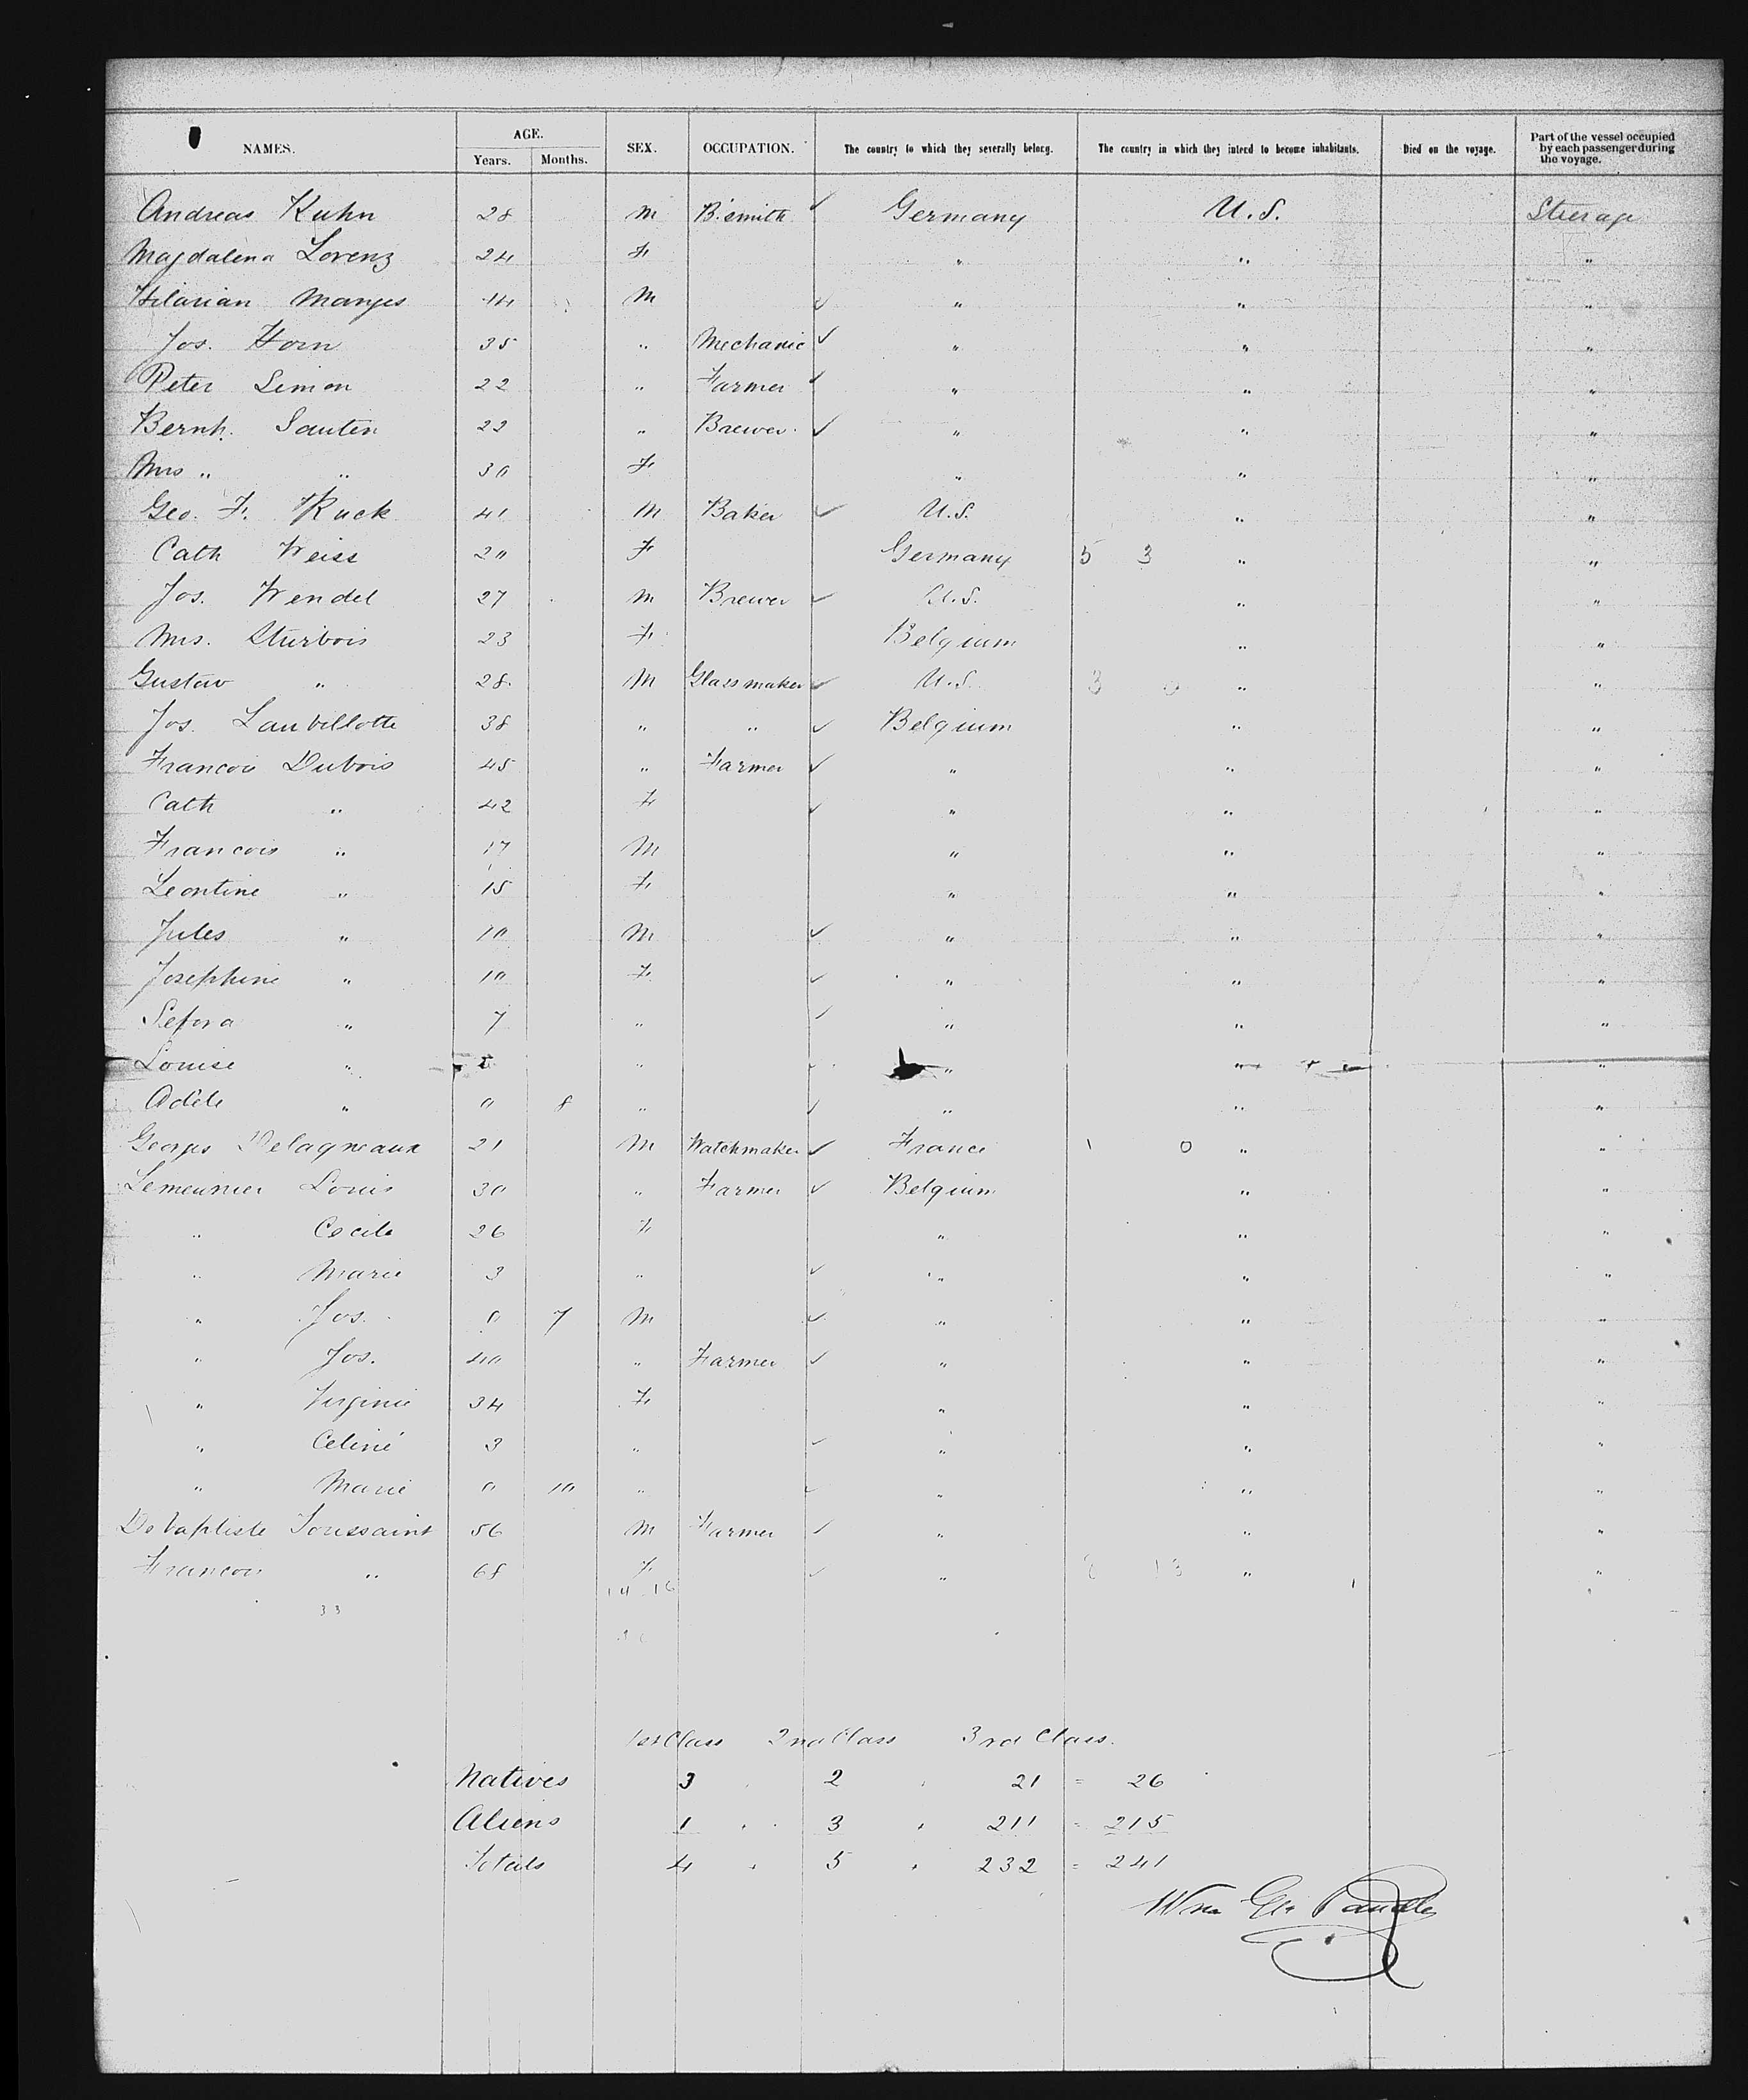 NAMES. AGE. Years. Months. SEX. OCCUPATION. The country to which they severally belong. The country in which they intend to become inhabitants. Died on the voyage. Part of the vessel occupied by each passenger during the voyage.
Andreas Kuhn 28 M B.smith ✓ Germany U.S. Steerage
Magdalena Lorenz 24 F " " "
Hilarian Manges 14 M ✓ " " "
Jos. Horn 35 " Mechanic ✓ " " "
Peter Simon 22 " Farmer ✓ " " "
Bernh. Sauten 22 " Brewer ✓ " " "
Mrs " " 30 F " " "
Geo. F. Ruck 41 M Baker ✓ U.S. " "
Cath Weiss 20 F Germany 5 3 " "
Jos. Wendel 27 M Brewer ✓ U.S. " "
Mrs. Sturbois 23 F Belgium " "
Gustav " 28 M Glassmaker ✓ U.S. 3 0 " "
Jos. Laubillotte 38 " " ✓ Belgium " "
Francois Dubois 45 " Farmer ✓ " " "
Cath " 42 F ✓ " " "
Francois " 17 M " " "
Leontine " 15 F " " "
Jules " 10 M ✓ " " "
Josephine " 10 F ✓ " " "
Sefora " 7 " ✓ " " "
Louise " " ✓ " " "
Adèle " 0 8 " ✓ " " "
Georges Delagneaux 21 M Watchmaker ✓ France 1 0 " "
Lemeunier Louis 30 " Farmer ✓ Belgium " "
" Cecile 26 F " " "
" Marie 3 " ✓ " " "
" Jos. 0 7 M ✓ " " "
" Jos. 40 " Farmer ✓ " " "
" Virginie 34 F " " "
" Celine 3 " ✓ " " "
" Marie 0 10 " ✓ " " "
Debaptiste Toussaint 56 M Farmer ✓ " " "
Francois " 68 F ✓ " 8 13 " "
14 16
33
1st Class 2nd Class 3rd Class.
Natives 3 2 21 = 26
Aliens 1 3 211 = 215
Totals 4 5 232 = 241
Wm Geo